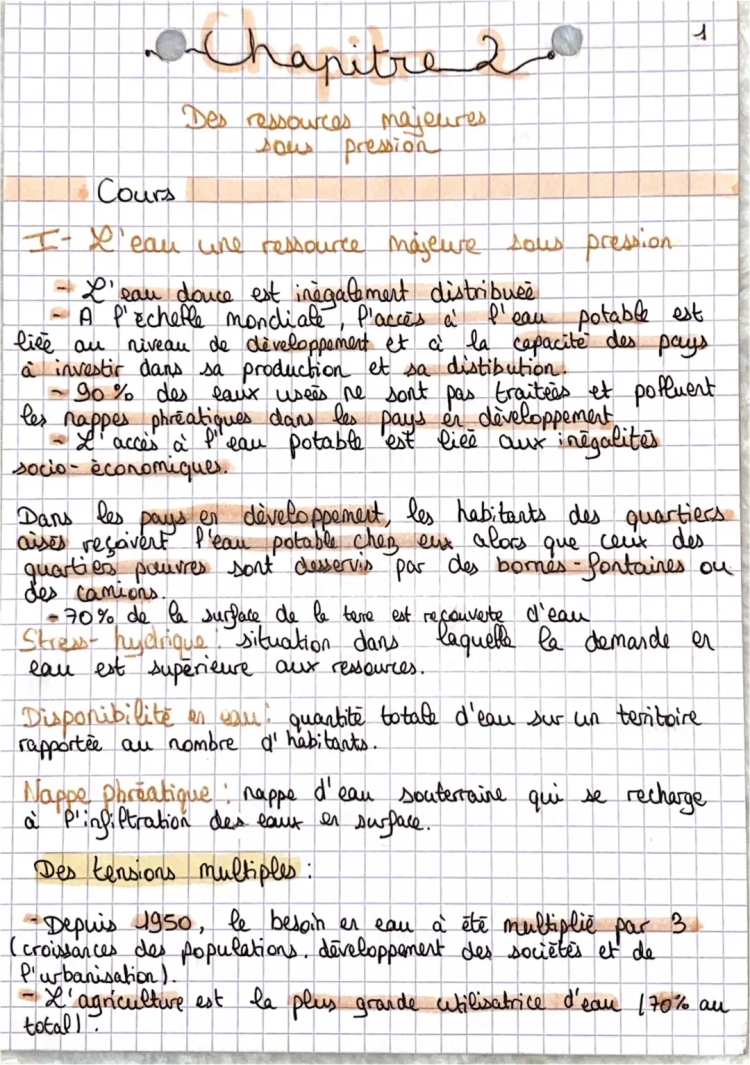 1
Chapitre 2
Des ressources majeures
sous pression
Cours
I- L'eau une ressource majeure sous pression
- L'eau douce est inégalement distribueé
- A l'échelle mondiale, l'accès à l'eau potable est
lieé au niveau de développement et à la capacité des pays
à investir dans sa production et sa distibution.
- 90% des eaux useés ne sont pas traiteés et polluent
les nappes phréatiques dans les pays en développement
- L'accès à l'eau potable est lieé aux inégalités
socio-économiques.
Dans les pays en développement, les habitants des quartiers
aisés reçoivent l'eau potable chez eux alors que ceux des
quartiers pauvres sont desservis par des bornes-fontaines ou
des camions.
- 70% de la surface de la terre est recouverte d'eau
Stress-hydrique : situation dans laquelle la demande en
eau est supérieure aux ressources.
Disponibilité en eau : quantité totale d'eau sur un territoire
rapportée au nombre d'habitants.
Nappe phréatique : nappe d'eau souterraine qui se recharge
à l'infiltration des eaux en surface.
Des tensions multiples :
- Depuis 1950, le besoin en eau à été multiplié par 3
(croissances des populations, développement des sociétés et de
l'urbanisation).
- L'agriculture est la plus grande utilisatrice d'eau (70% au
total).